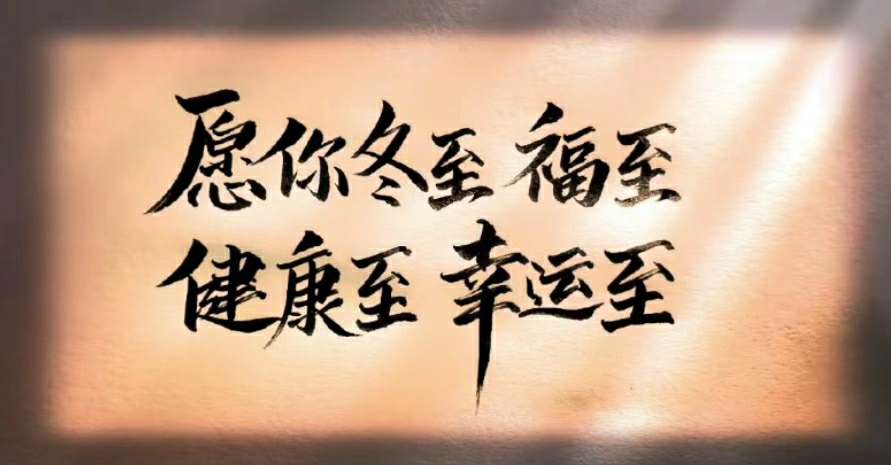 愿你冬至 福至
健康至 幸运至